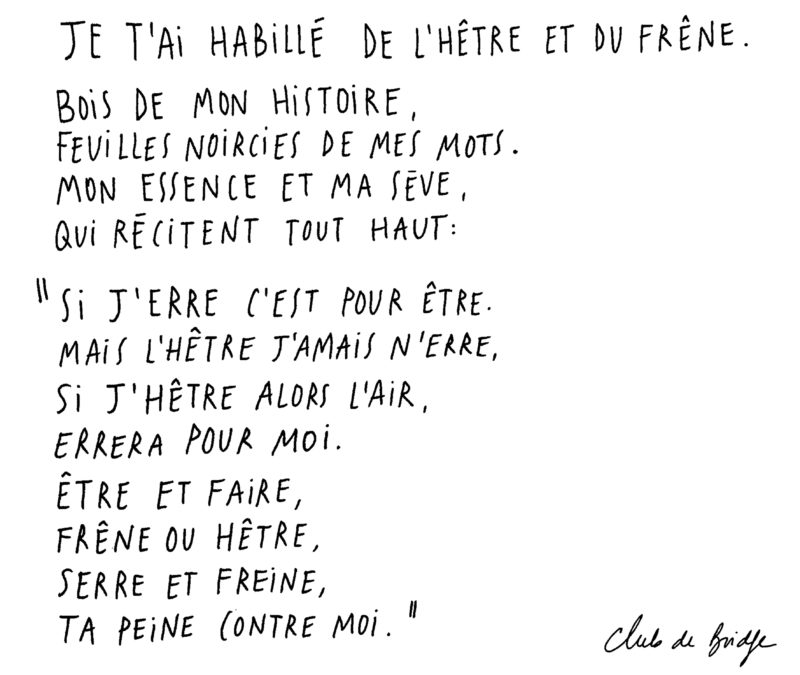 JE T'Ai HABiLLÉ DE L'HÊTRE ET DU FRÊNE.
BOiS DE MON HiSTOiRE,
FEUiLLES NOIRCiES DE MES MOTS.
MON ESSENCE ET MA SÈVE,
QUi RÉCiTENT TOUT HAUT:
"Si J'ERRE C'EST POUR ÊTRE.
MAiS L'HÊTRE J'AMAiS N'ERRE,
Si J'HÊTRE ALORS L'AiR,
ERRERA POUR MOi.
ÊTRE ET FAiRE,
FRÊNE OU HÊTRE,
SERRE ET FREiNE,
TA PEiNE CONTRE MOi."
Club de Bridge